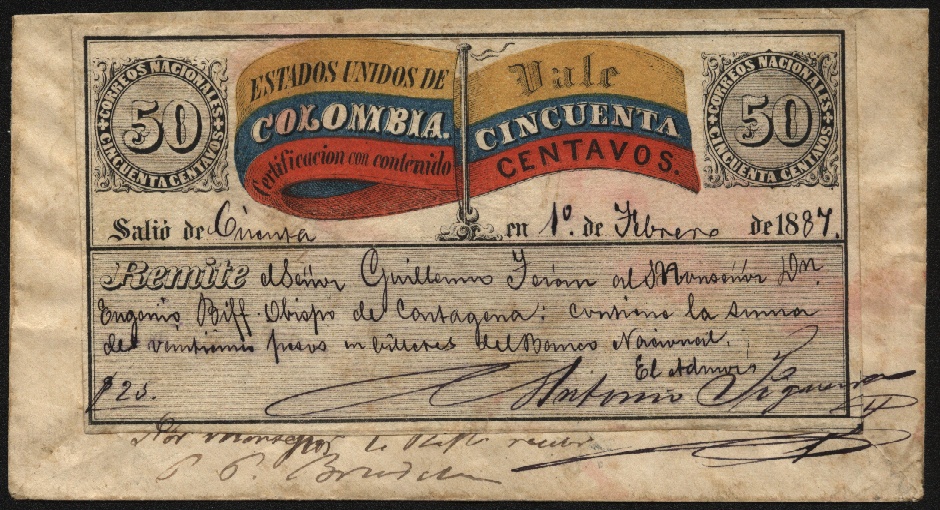 CORREOS NACIONALES
50
CINCUENTA CENTAVOS
ESTADOS UNIDOS DE
COLOMBIA.
Certificacion con contenido
Vale
CINCUENTA
CENTAVOS.
CORREOS NACIONALES
50
CINCUENTA CENTAVOS
Salió de Cúcuta en 1º. de Febrero de 1887.
Remite el Señor Guillermo al Monseñor Dn.
Eugenio Biffi Obispo de Cartagena: contiene la suma
de veinticinco pesos en billetes del Banco Nacional.
El Admor.
$25.
Antonio Figueroa
Por monseñor